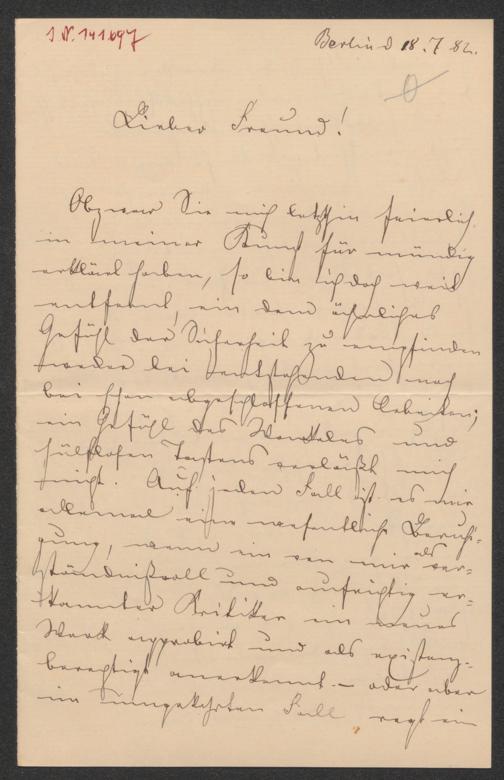 J.N. 141.697
Berlin d 18. 7. 82.
Lieber Freund!
Obzwar Sie mich letzthin feierlich
in meiner Kunst für mündig
erklärt haben, so bin ich doch weit
entfernt, ein dem ähnliches
Gefühl der Sicherheit zu empfinden
weder bei entstehenden noch
bei schon abgeschlossenen Arbeiten;
ein Gefühl des und
hülflosen Tastens verläßt mich
nicht. Auf jeden Fall ist es mir
allemal eine wesentliche Beruhi-
gung, wenn ein von mir als ver-
ständnißvoll und aufrichtig er-
kannter Kritiker ein neues
Werk approbirt und als existenz-
berechtigt anerkennt – oder aber
im umgekehrten Fall regt ein